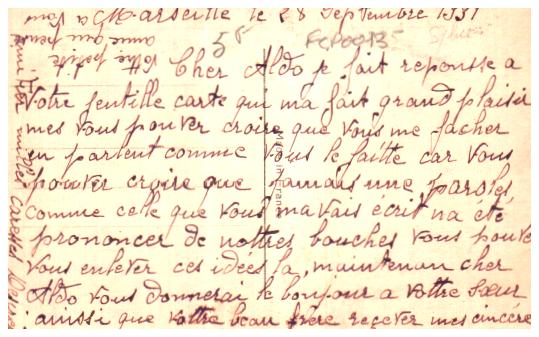 Marseille le 28 Septembre 1931
55
FCP00135
Cher Aldo je fait reponsse a
votre gentille carte qui ma fait grand plaisir
mes vous pouver croire que vous me facher
en parlent comme vous le faitte car vous
pouver croire que jamais une paroles
comme celle que vous mavais écrit na été
prononcer de nottres bouches vous pouve
vous enlever ces idées la, maintenan cher
Aldo vous donnerai le bonjour a vottre sœur
ainssi que vottre beau frère recever mes sincère
mille caresses
Votre petite
amie qui pense
a vous